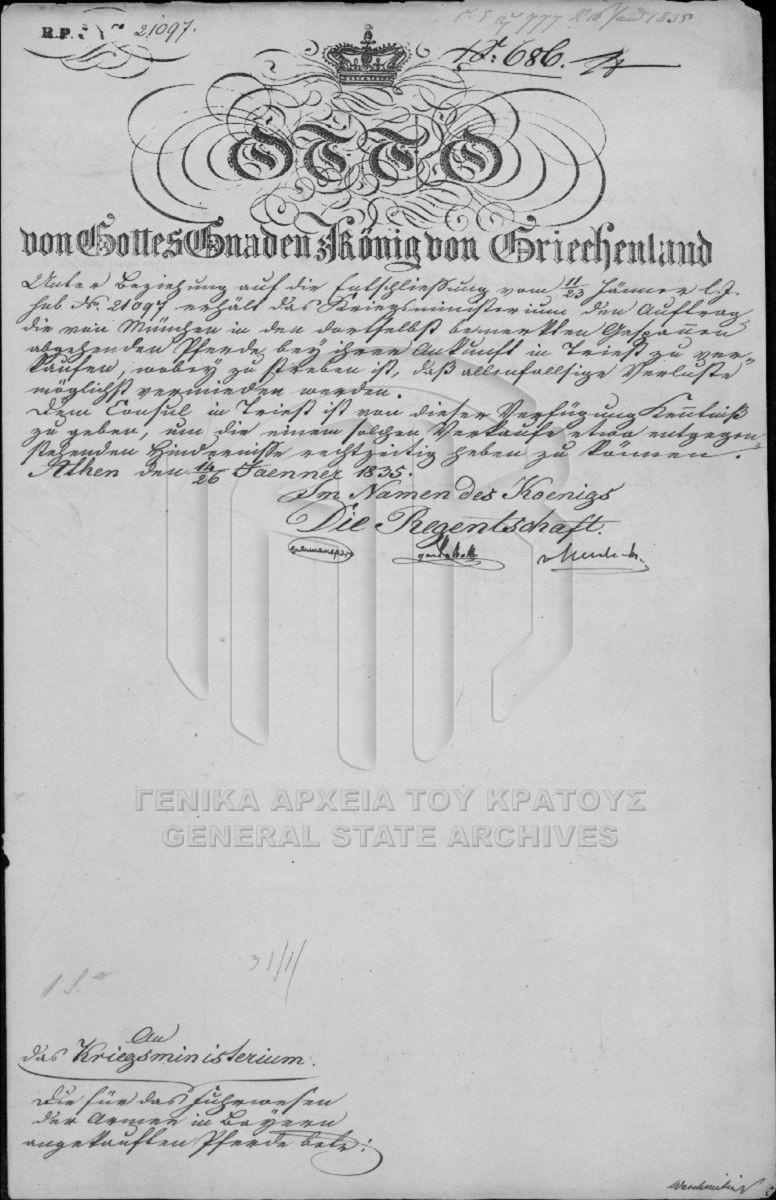 R.P. № 21097.
777 1835
№ 686.
OTTO
von Gottes Gnaden König von Griechenland
Unter Beziehung auf die Entschließung vom 11/23 Jänner l. J.
sub № 21097 erhält das Kriegsministerium den Auftrag,
die von München in den dortselbst bemerkten Gespannen
abgehenden Pferde, bey ihrer Ankunft in Triest zu ver-
kaufen, wobey zu streben ist, daß allenfallsige Verluste
möglichst vermieden werden.
Dem Consul in Triest ist von dieser Verfügung Kenntniß
zu geben, um die einem solchen Verkaufe etwa entgegen-
stehenden Hindernisse rechtzeitig heben zu können.
Athen den 14/26 Jaenner 1835.
Im Namen des Koenigs
Die Regentschaft.
ΓΕΝΙΚΑ ΑΡΧΕΙΑ ΤΟΥ ΚΡΑΤΟΥΣ
GENERAL STATE ARCHIVES
31/1
An
das Kriegsministerium.
Die für das Fuhrwesen
der Armee in Bayern
angekauften Pferde betr: